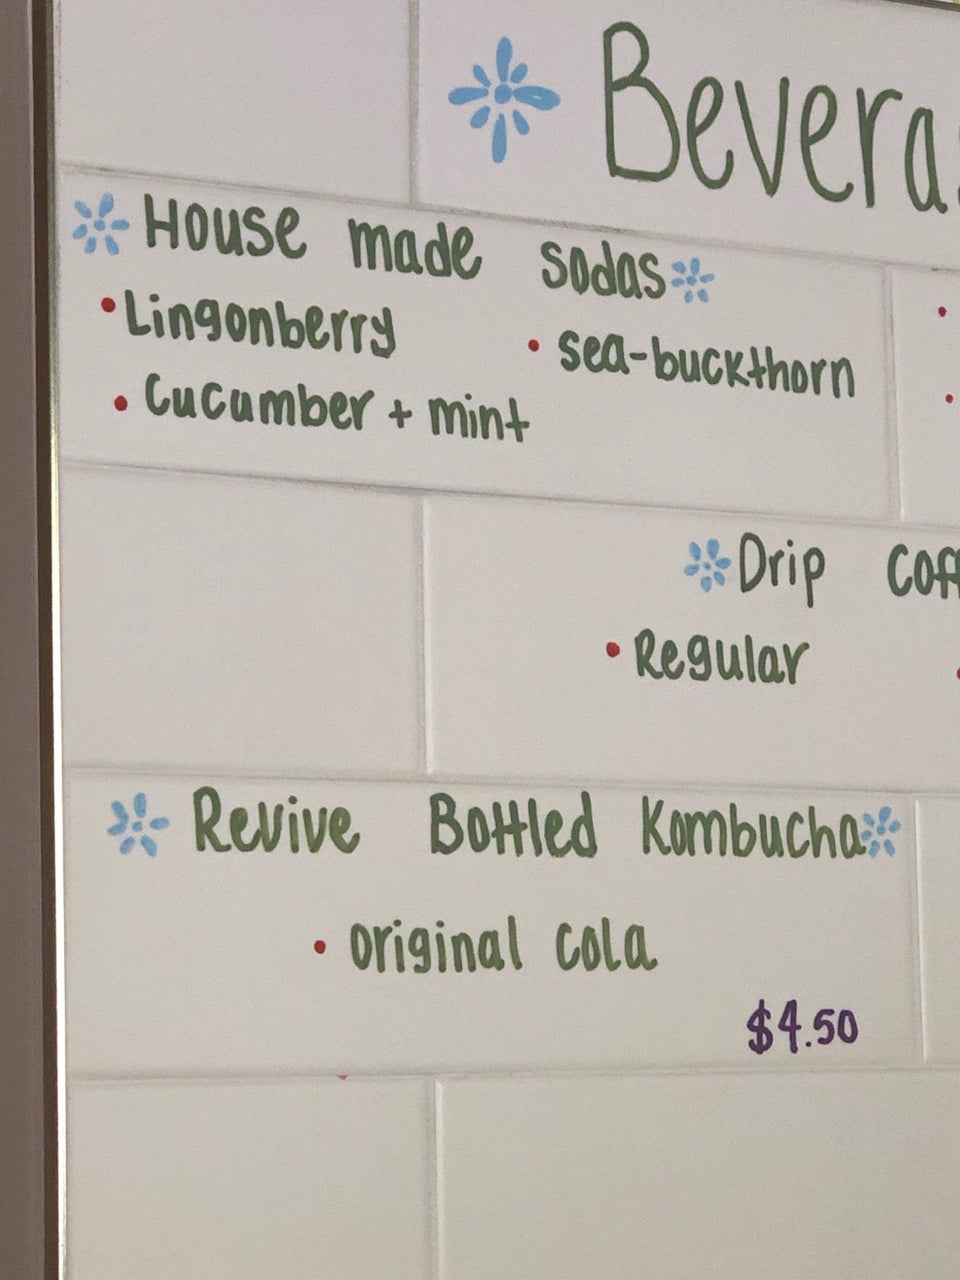 Bevera
House made sodas
• Lingonberry
• sea-buckthorn
• cucumber + mint
Drip Cof
• Regular
Revive Bottled Kombucha
• original cola
$4.50